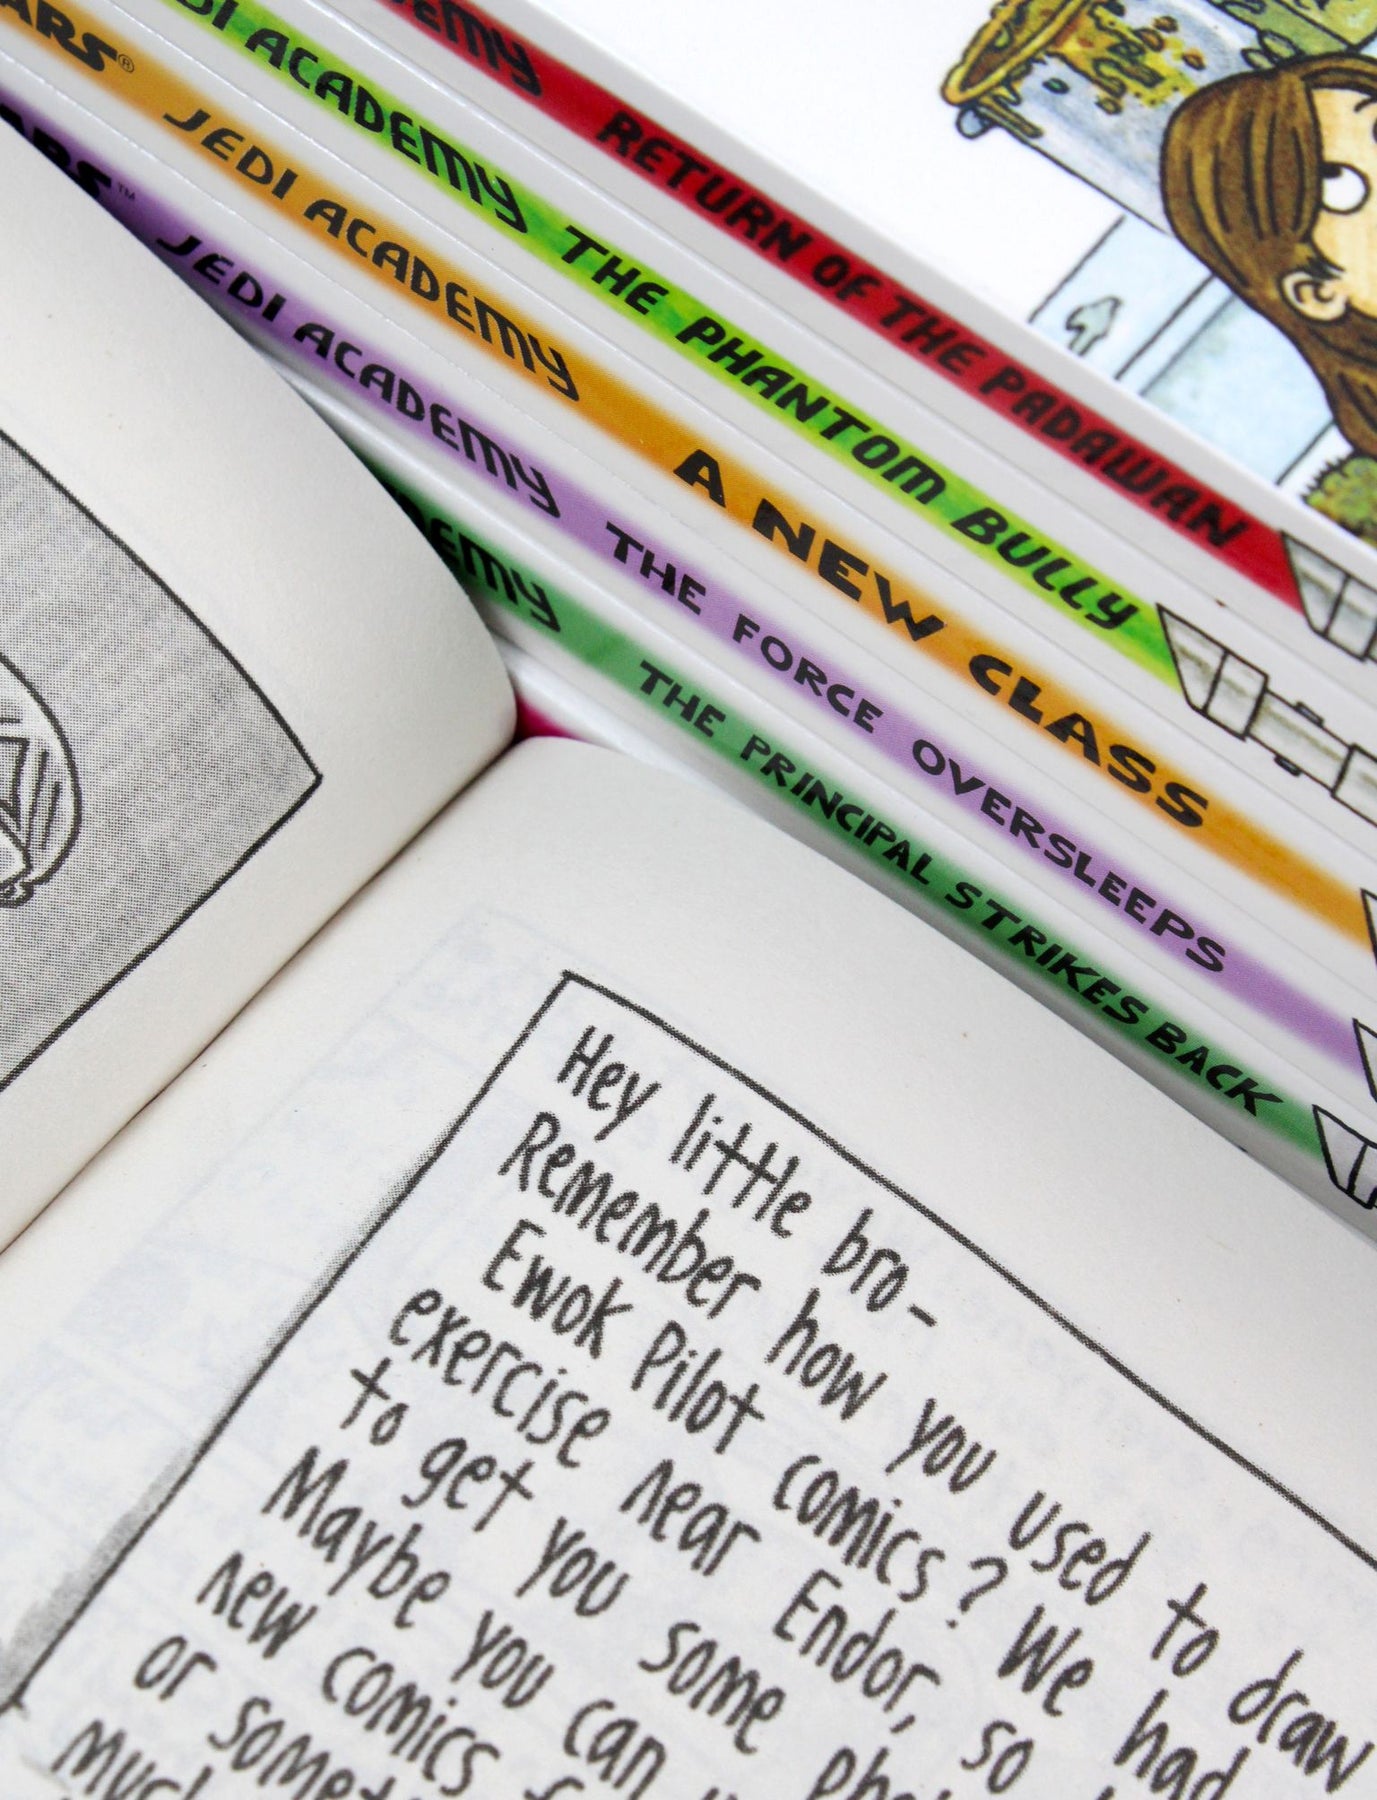 RETURN OF THE PADAWAN
JEDI ACADEMY THE PHANTOM BULLY
JEDI ACADEMY A NEW CLASS
JEDI ACADEMY THE FORCE OVERSLEEPS
THE PRINCIPAL STRIKES BACK
Hey little bro-
Remember how you used to draw
Ewok Pilot comics? We had
exercise near Endor, so
to get you some
Maybe you can
new comics
or